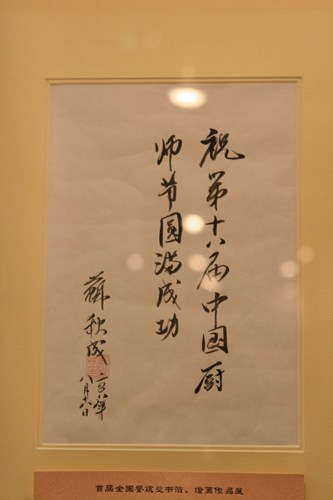 祝第十八届中国厨
师节圆满成功
苏秋成
二〇〇八年
八月十八日
首届全国餐饮业书法、绘画作品展